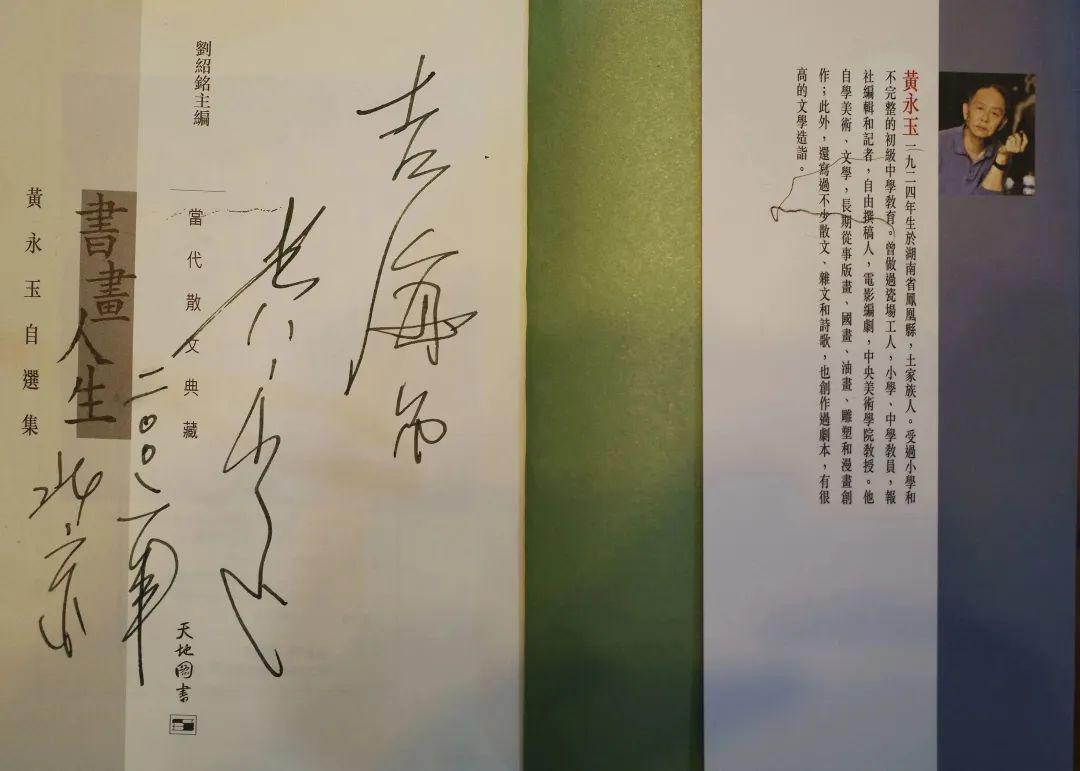 黃永玉 一九二四年生於湖南省鳳凰縣，土家族人。受過小學和
不完整的初級中學教育。曾做過瓷場工人，小學、中學教員，報
社編輯和記者，自由撰稿人，電影編劇，中央美術學院教授。他
自學美術、文學，長期從事版畫、國畫、油畫、雕塑和漫畫創
作；此外，還寫過不少散文、雜文和詩歌，也創作過劇本，有很
高的文學造詣。
劉紹銘主編
當代散文典藏
天地圖書
書畫人生
北京
黃永玉自選集